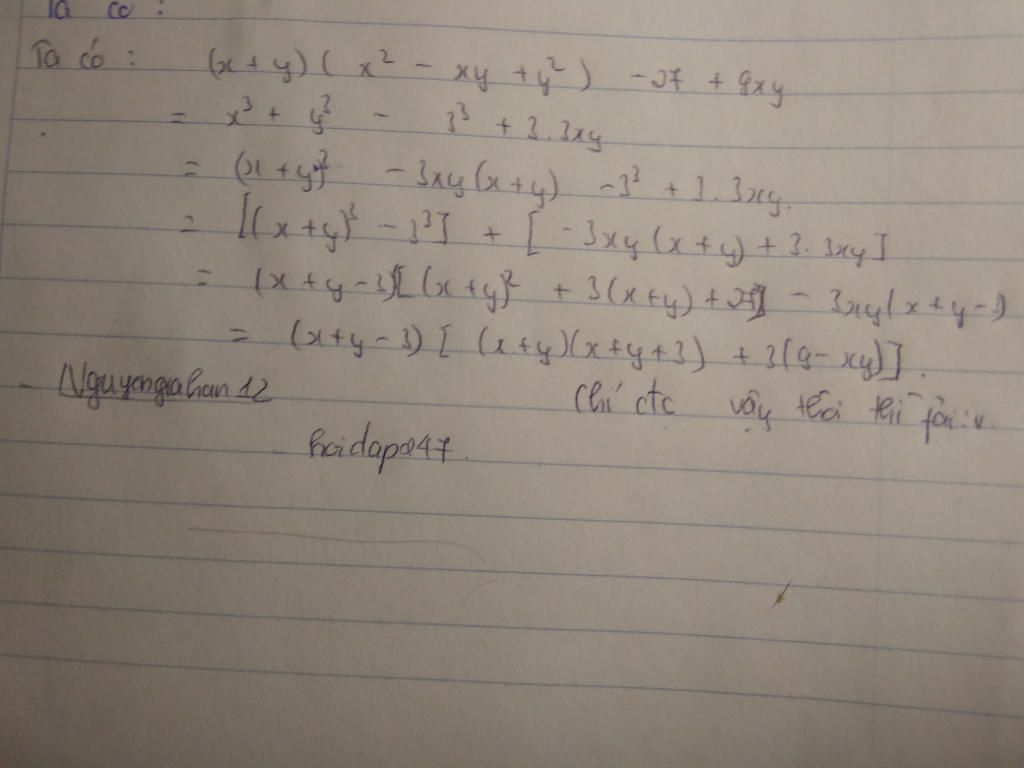 Ta có :
Ta có : (x + y) ( x² - xy + y² ) - 27 + 9xy
= x³ + y³ - 3³ + 3.3xy
= (x + y)³ - 3xy(x + y) - 3³ + 3.3xy.
= [(x + y)³ - 3³] + [ -3xy (x + y) + 3.3xy]
= (x + y - 3)[(x + y)² + 3(x + y) + 27] - 3xy(x + y - 3)
= (x + y - 3) [ (x + y)(x + y + 3) + 3(9 - xy)].
- Nguyengiahan12 Chỉ đc vậy thôi thì
hoidap247.